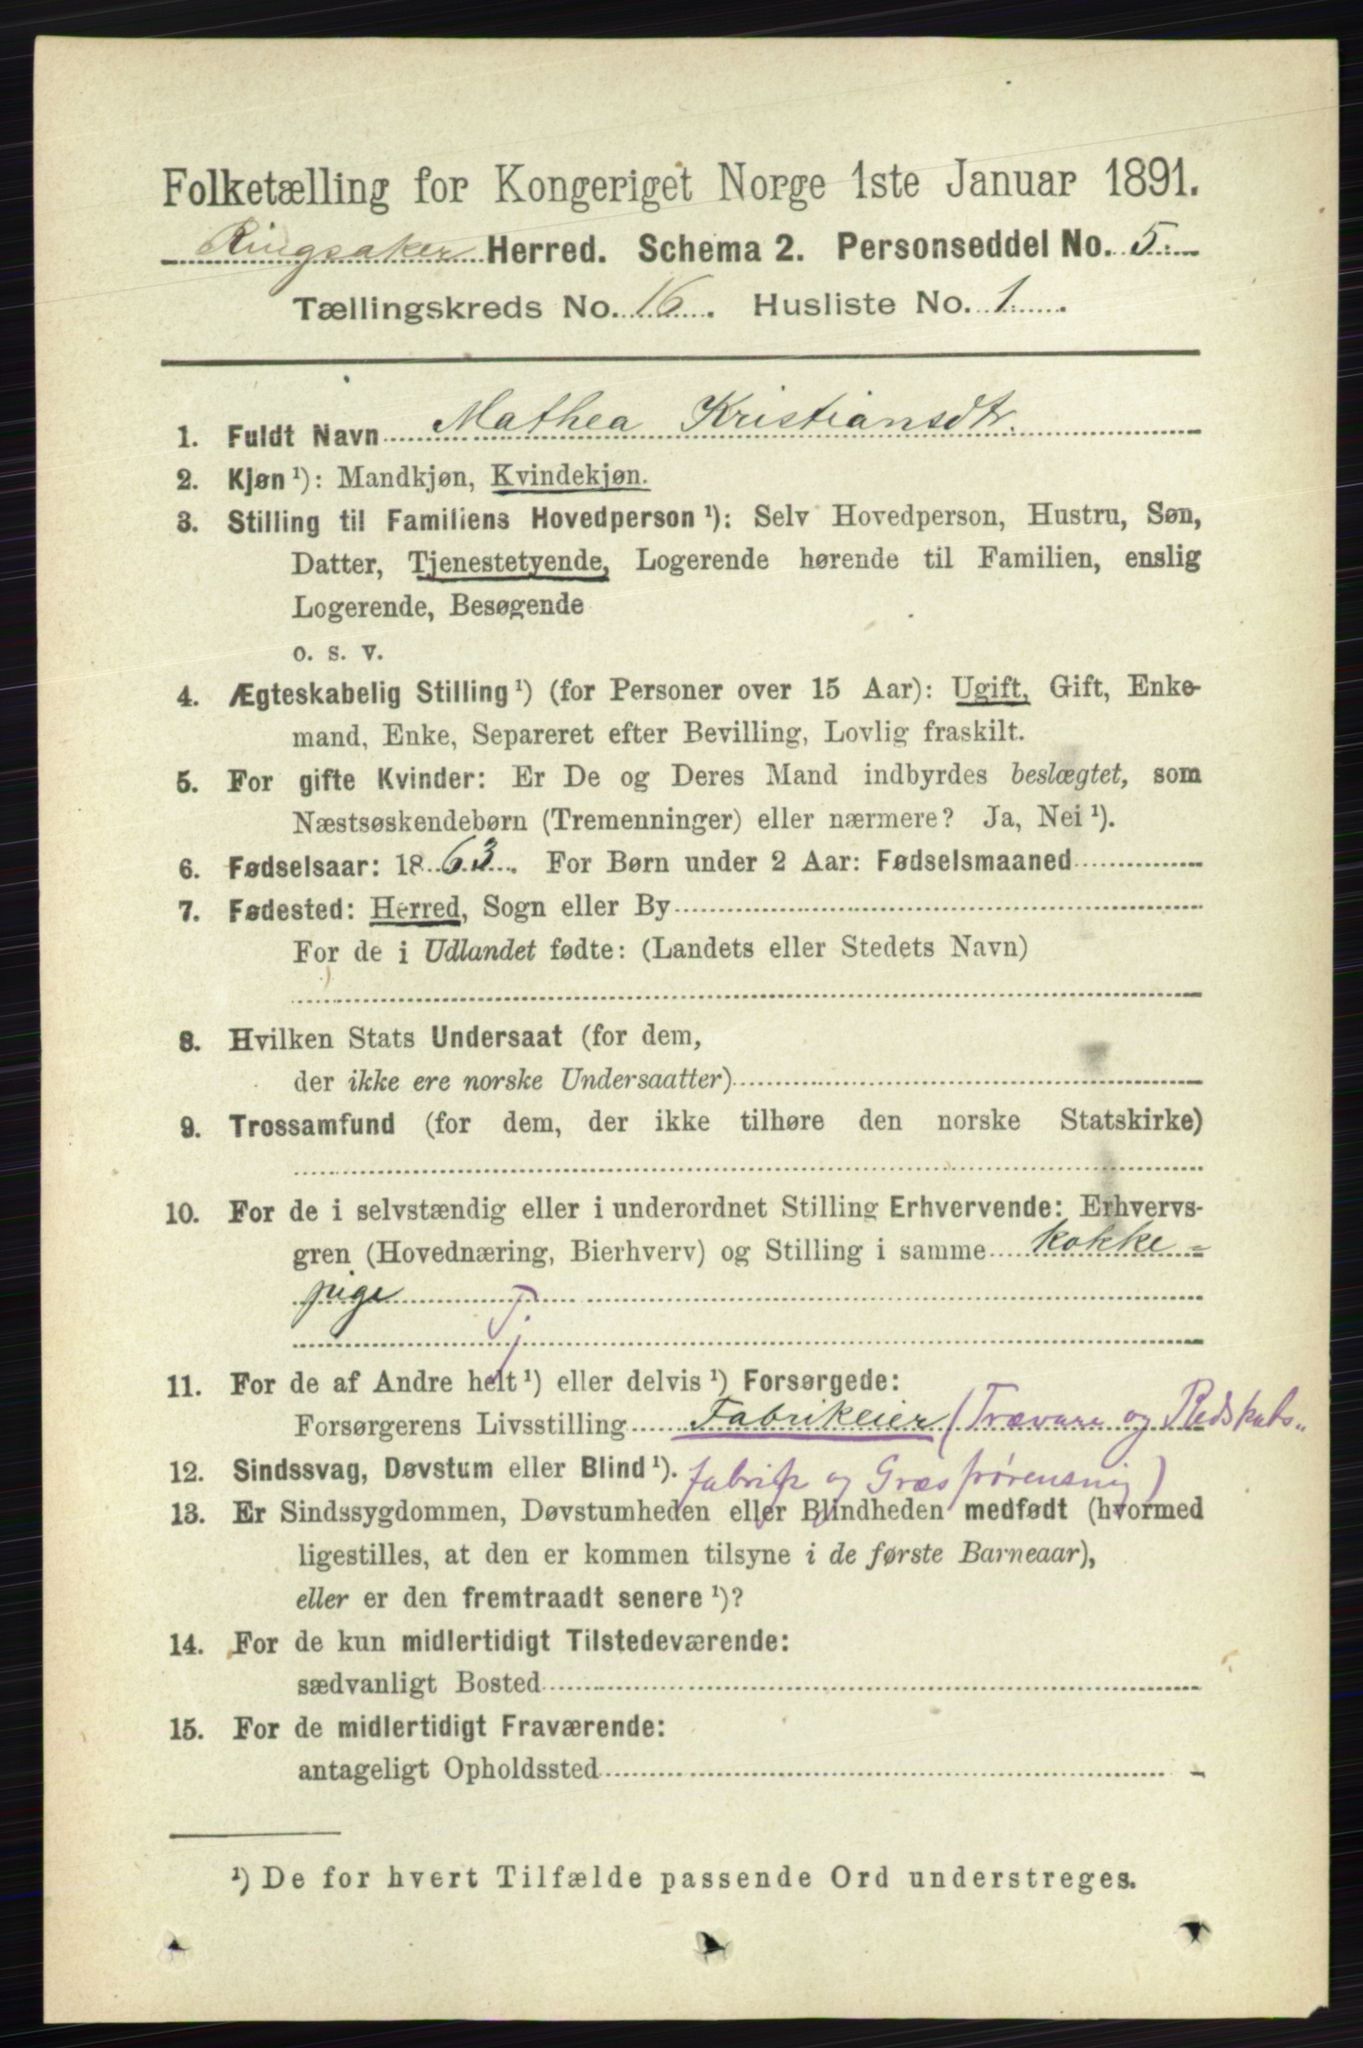 Folketælling for Kongeriget Norge 1ste Januar 1891.
Ringsaker Herred. Schema 2. Personseddel No. 5.
Tællingskreds No. 16. Husliste No. 1.
1. Fuldt Navn Mathea Kristiansdtr.
2. Kjøn ¹): Mandkjøn, Kvindekjøn.
3. Stilling til Familiens Hovedperson ¹): Selv Hovedperson, Hustru, Søn,
Datter, Tjenestetyende, Logerende hørende til Familien, enslig
Logerende, Besøgende
o. s. v.
4. Ægteskabelig Stilling ¹) (for Personer over 15 Aar): Ugift, Gift, Enke-
mand, Enke, Separeret efter Bevilling, Lovlig fraskilt.
5. For gifte Kvinder: Er De og Deres Mand indbyrdes beslægtet, som
Næstsøskendebørn (Tremenninger) eller nærmere? Ja, Nei ¹).
6. Fødselsaar: 1863. For Børn under 2 Aar: Fødselsmaaned
7. Fødested: Herred, Sogn eller By
For de i Udlandet fødte: (Landets eller Stedets Navn)
8. Hvilken Stats Undersaat (for dem,
der ikke ere norske Undersaatter)
9. Trossamfund (for dem, der ikke tilhøre den norske Statskirke)
10. For de i selvstændig eller i underordnet Stilling Erhvervende: Erhvervs-
gren (Hovednæring, Bierhverv) og Stilling i samme kokke-
pige Tj.
11. For de af Andre helt ¹) eller delvis ¹) Forsørgede:
Forsørgerens Livsstilling Fabrikeier (Trævare og Redskabs-
12. Sindssvag, Døvstum eller Blind ¹). fabrik og Græsfrørensnig)
13. Er Sindssygdommen, Døvstumheden eller Blindheden medfødt (hvormed
ligestilles, at den er kommen tilsyne i de første Barneaar),
eller er den fremtraadt senere ¹)?
14. For de kun midlertidigt Tilstedeværende:
sædvanligt Bosted
15. For de midlertidigt Fraværende:
antageligt Opholdssted
¹) De for hvert Tilfælde passende Ord understreges.